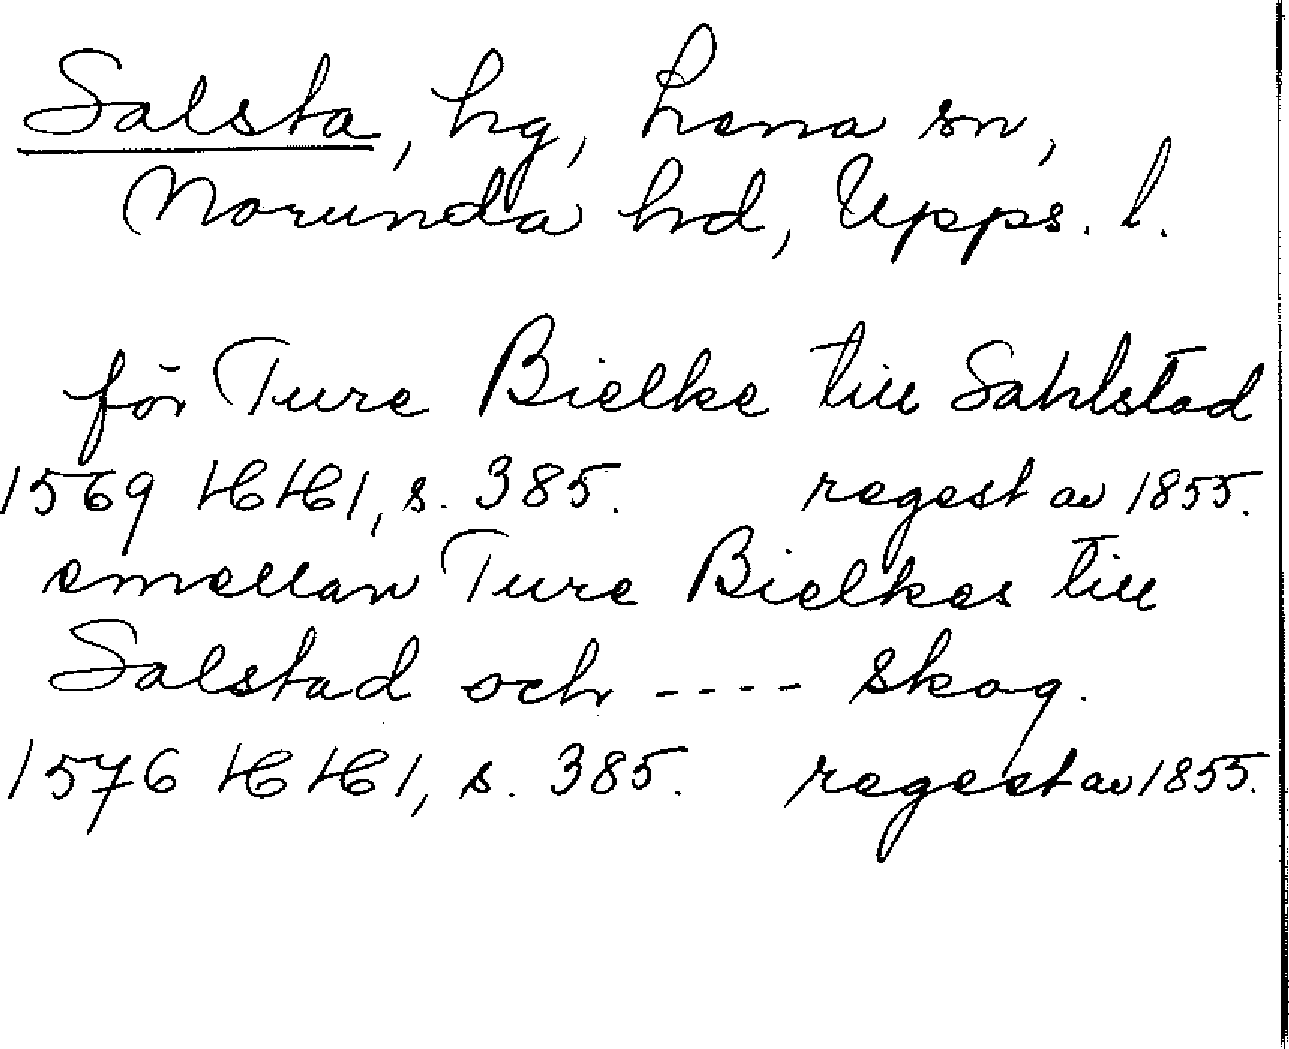 Salsta, hg, Lena sn,
Norunda hd, Upps. l.
för Ture Bielke till Sahlstad
1569 HH 1, s. 385. regest av 1855.
emellan Ture Bielkes till
Salstad och ---- skog.
1576 HH 1, s. 385. regest av 1855.